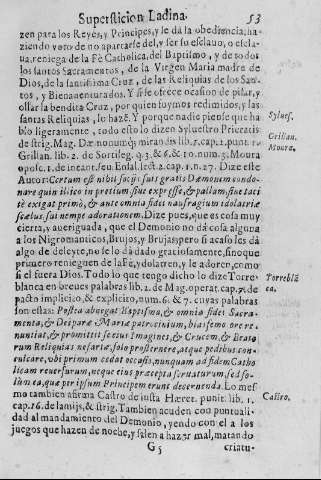 Supersticion Ladina. 53
zen para los Reyes, y Principes, y le dà la obediencia, ha-
ziendo voto de no apartarse del, y ser su esclauo, o escla-
ua, reniega de la Fè Catholica, del Baptismo, y de todos
los santos Sacramentos, de la Virgen Maria madre de
Dios, de la santissima Cruz, de las Reliquias de los San-
tos, y Bienauenturados. Y si se ofrece ocasion de pisar, y
ollar la bendita Cruz, por quien fuymos redimidos, y las
santas Reliquias, lo haze. Y porque nadie piense que ha-
blo ligeramente, todo esto lo dizen Syluestro Prieratis
Syluest.
de strig. Mag. Dæmonumq; mirandis lib. 2. cap. 1. punt. 10
Grillan. lib. 2. de Sortileg. q. 3. & 6. & 10. num. 3. Moura
Grillan.
Moura.
opusc. 1. de incant. seu Ensal. sect. 2. cap. 1. n. 27. Dize este
Autor: Certum est nihil sociis suis gratis Dæmonem condo-
nare quin illico in pretium siue expresse, & pallam, siue taci
tè exigat primò, & ante omnia fidei naufragium idolatriæ
scælus, sui nempe adorationem. Dize pues, que es cosa muy
cierta, y aueriguada, que el Demonio no dà cosa alguna
a los Nigromanticos, Brujos, y Brujas; pero si acaso les dà
algo de deleyte, no se lo dà dado graciosamente, sinoque
primero renieguen de la Fè, ydolatren, y le adoren, como
si el fuera Dios. Todo lo que tengo dicho lo dize Torre-
Torrebla
ca.
blanca en breues palabras lib. 2. de Mag. operat. cap. 7. de
pacto implicito, & explicito, num. 6. & 7. cuyas palabras
son estas: Postea aburgat Baptisma, & omnia fidei Sacra-
menta, & Deiparæ Mariæ patrocinium, blasfemo ore re-
nuntiat, & promittit se eius Imagines, & Crucem, & Beato
rum Reliquias nefariè, solo prosternere, atque pedibus con-
culcare, vbi primum cedat occasio, nunquam ad fidem Catho
licam reuersurum, neque eius præcepta seruaturum, sed so-
lum ea, quæ per ipsum Principem erunt decernenda. Lo mes
mo tambien afirma Castro de iusta Hæret. punit. lib. 1.
Castro.
cap. 16. de lamijs, & strig. Tambien acuden con puntuali-
dad al mandamiento del Demonio, yendo con el a los
juegos que hazen de noche, y salen a hazer mal, matando
G 5 criatu-